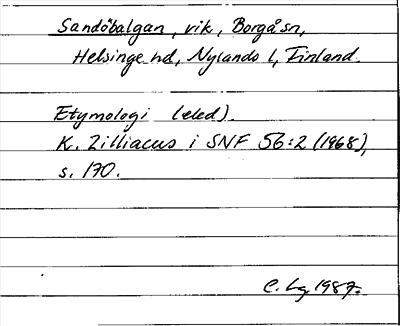 Sandöbalgan, vik, Borgå sn,
Helsinge hd, Nylands l, Finland.
Etymologi (eled).
K. Zilliacus i SNF 56:2 (1968),
s. 170.
C. Lg 1987.